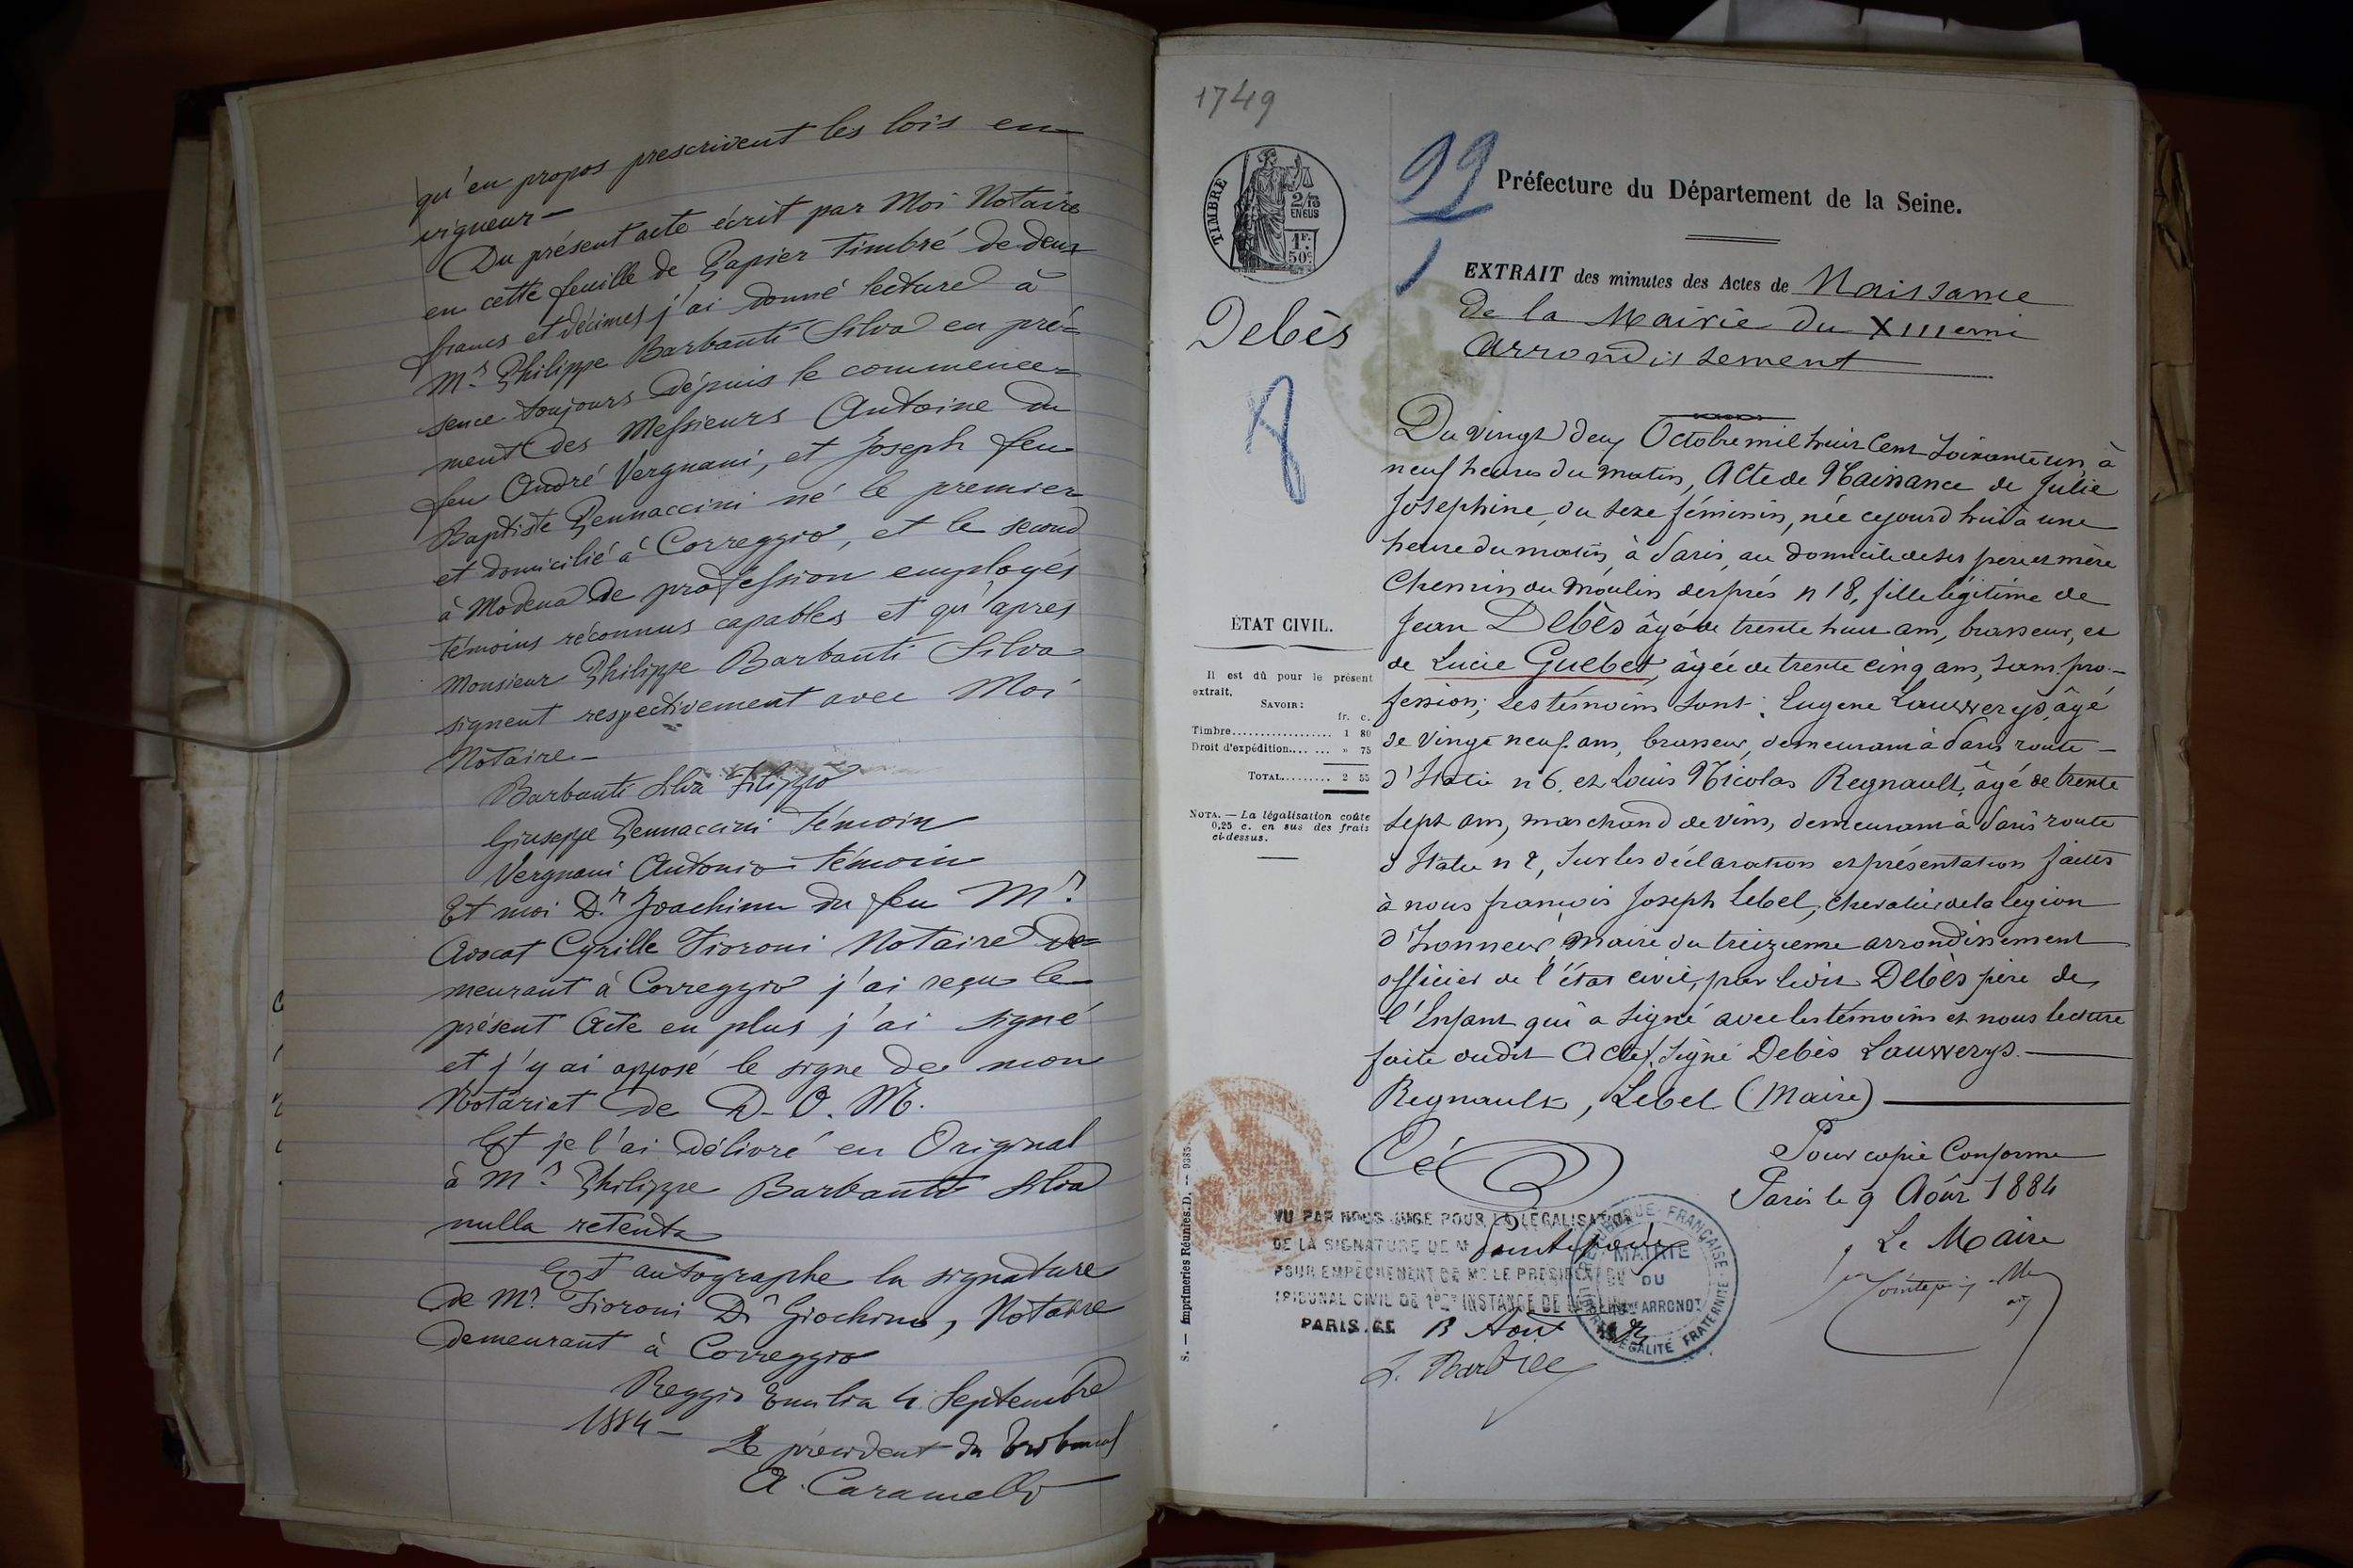 qu'en propos prescrivent les lois en
vigueur —
Du présent acte écrit par Moi Notaire
en cette feuille de Papier timbré de deux
francs et décimes j'ai donné lecture à
Mr. Philippe Barbanti Silva en pré=
sence toujours dépuis le commence=
ment des Messieurs Antoine du
feu André Vergnani, et Joseph feu
Baptiste Gennaccini né le premier
et domicilié à Correggio, et le second
à Modena de profession employés
témoins réconnus capables et qu'après
Monsieur Philippe Barbanti Silva
signent respectivement avec Moi
Notaire —
Barbanti Silva Filippo
Giuseppe Gennaccini Témoin
Vergnani Antonio Témoin
Et moi Dr. Joachim du feu Mr.
Avocat Cyrille Fioroni Notaire de=
meurant à Correggio j'ai reçu le
présent Acte en plus j'ai signé
et j'y ai apposé le signe de mon
Notariat de D. O. M.
Et je l'ai délivré en Original
à Mr. Philippe Barbanti Silva
nulla retenta
Est autographe la signature
de Mr. Fioroni Dr Giochino, Notaire
demeurant à Correggio
Reggio Emilia 4 Septembre
1884 —
Le président du Tribunal
A. Caramelli
1749
TIMBRE
2/10
EN SUS
1F.
50c
99
Préfecture du Département de la Seine.
EXTRAIT des minutes des Actes de Naissance
de la Mairie du XIIIeme
arrondissement
Debès
8
Du vingt deux Octobre mil huit cent soixante un, à
neuf heures du matin, Acte de Naissance de Julie
Joséphine, du sexe féminin, née cejourd'hui à une
heure du matin, à Paris, au domicile de ses père et mère
Chemin du Moulin des prés n 18, fille légitime de
Jean Debès âgé de trente huit ans, brasseur, et
de Lucie Guebet, âgée de trente cinq ans, sans pro-
fession; les témoins sont: Eugene Lauwerys, âgé
de vingt neuf ans, brasseur, demeurant à Paris route —
d'Italie n 6. et Louis Nicolas Regnault, âgé de trente
sept ans, marchand de vins, demeurant à Paris route
d'Italie n 2, sur les déclaration et présentation faites
à nous françois Joseph Lebel, chevalier de la légion
d'honneur, Maire du treizieme arrondissement
officier de l'état civil, par ledit Debès père de
l'Enfant qui a signé avec les témoins et nous lecture
faite dudit Acte. Signé Debès Lauwerys. —
Regnault, Lebel (Maire) —
ÉTAT CIVIL.
Il est dû pour le présent
extrait.
SAVOIR:
fr. c.
Timbre.................. 1 80
Droit d'expédition........ » 75
TOTAL......... 2 55
NOTA. — La légalisation coûte
0,25 c. en sus des frais
ci-dessus.
S. — Imprimeries Réunies. D. — 9385.
Pour copie Conforme
Paris le 9 Août 1884
Le Maire
VU PAR NOUS JUGE POUR LA LÉGALISATION
DE LA SIGNATURE DE M
POUR EMPÊCHEMENT DE Mr LE PRÉSIDENT DU
TRIBUNAL CIVIL DE 1ère INSTANCE DE LA SEINE
PARIS, LE 13 Août
RÉPUBLIQUE FRANÇAISE
MAIRIE
DU
ARRONDT
LIBERTÉ ÉGALITÉ FRATERNITÉ